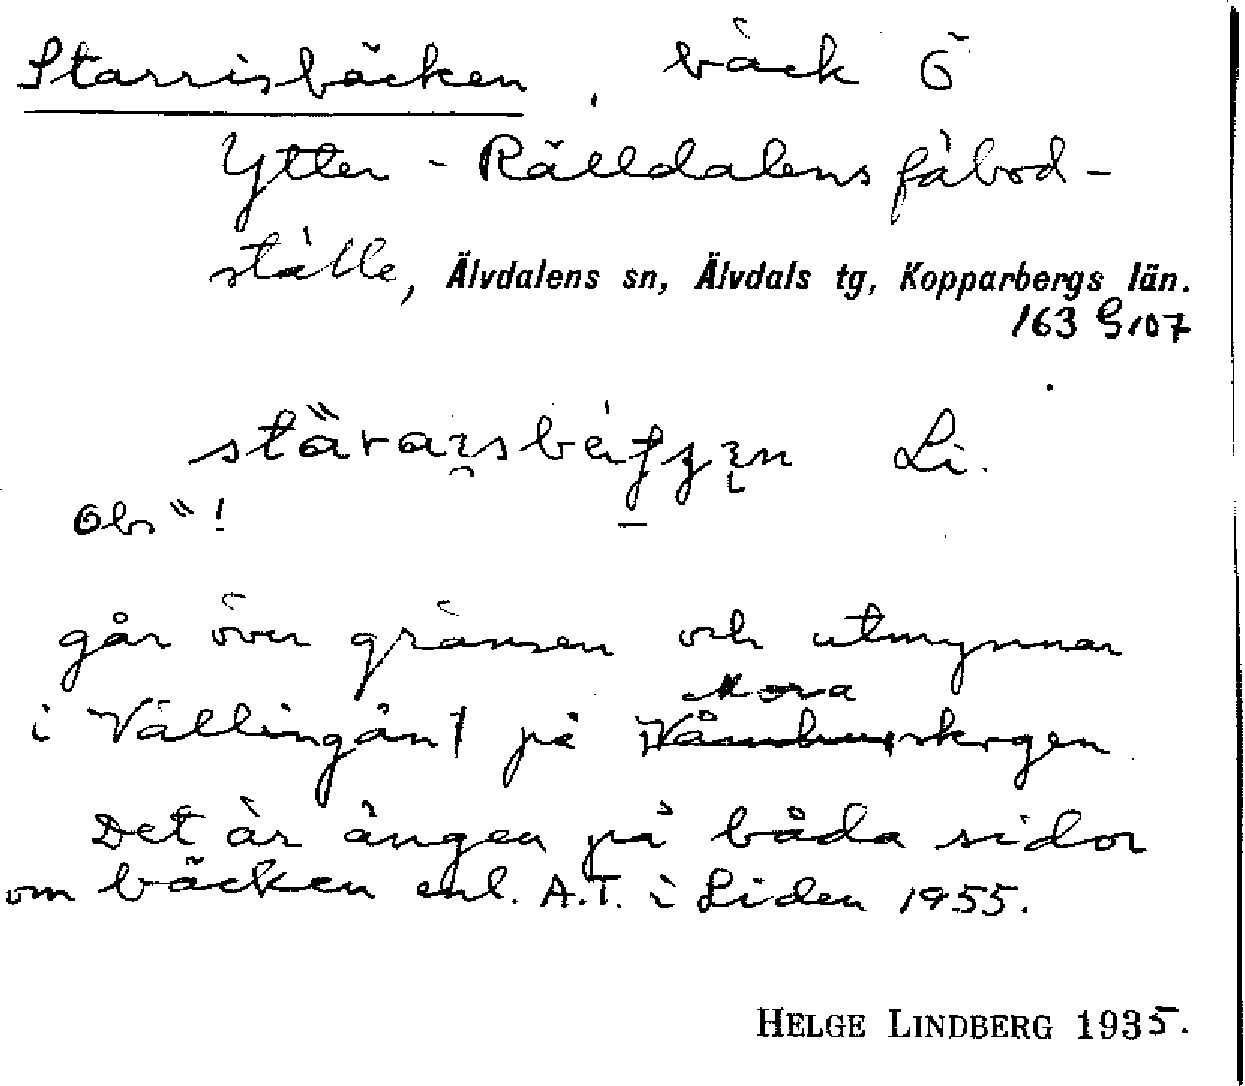 Starrisbäcken, bäck Ö
Ytter-Rälldalens fäbod-
ställe, Älvdalens sn, Älvdals tg, Kopparbergs län.
163 G 107
Li.
Obs " !
går över gränsen och utmynnar
Mora
i Vällingån på Våmhusskogen
Det är ängen på båda sidor
om bäcken enl. A.T. i Liden 1955.
HELGE LINDBERG 1935.